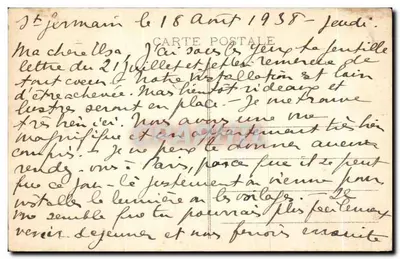 St Germain le 18 Août 1938 - jeudi.
CARTE POSTALE
Ma chère Elsa, J'ai sous les yeux ta gentille
lettre du 21 juillet et je t'en remercie de
tout coeur - Notre installation est loin
d'être achevée. Mais bientôt rideaux et
lustres seront en place - Je me trouve
très bien ici. Nous avons une vue
magnifique et un appartement très bien
compris. - Je ne peux te donner aucun
rendez-vous à Paris, parce que il se peut
que ce jour-là justement on vienne pour
installer la lumière ou les voilages. Il
me semble que tu pourrais plus facilement
venir déjeuner et nous ferions ensuite